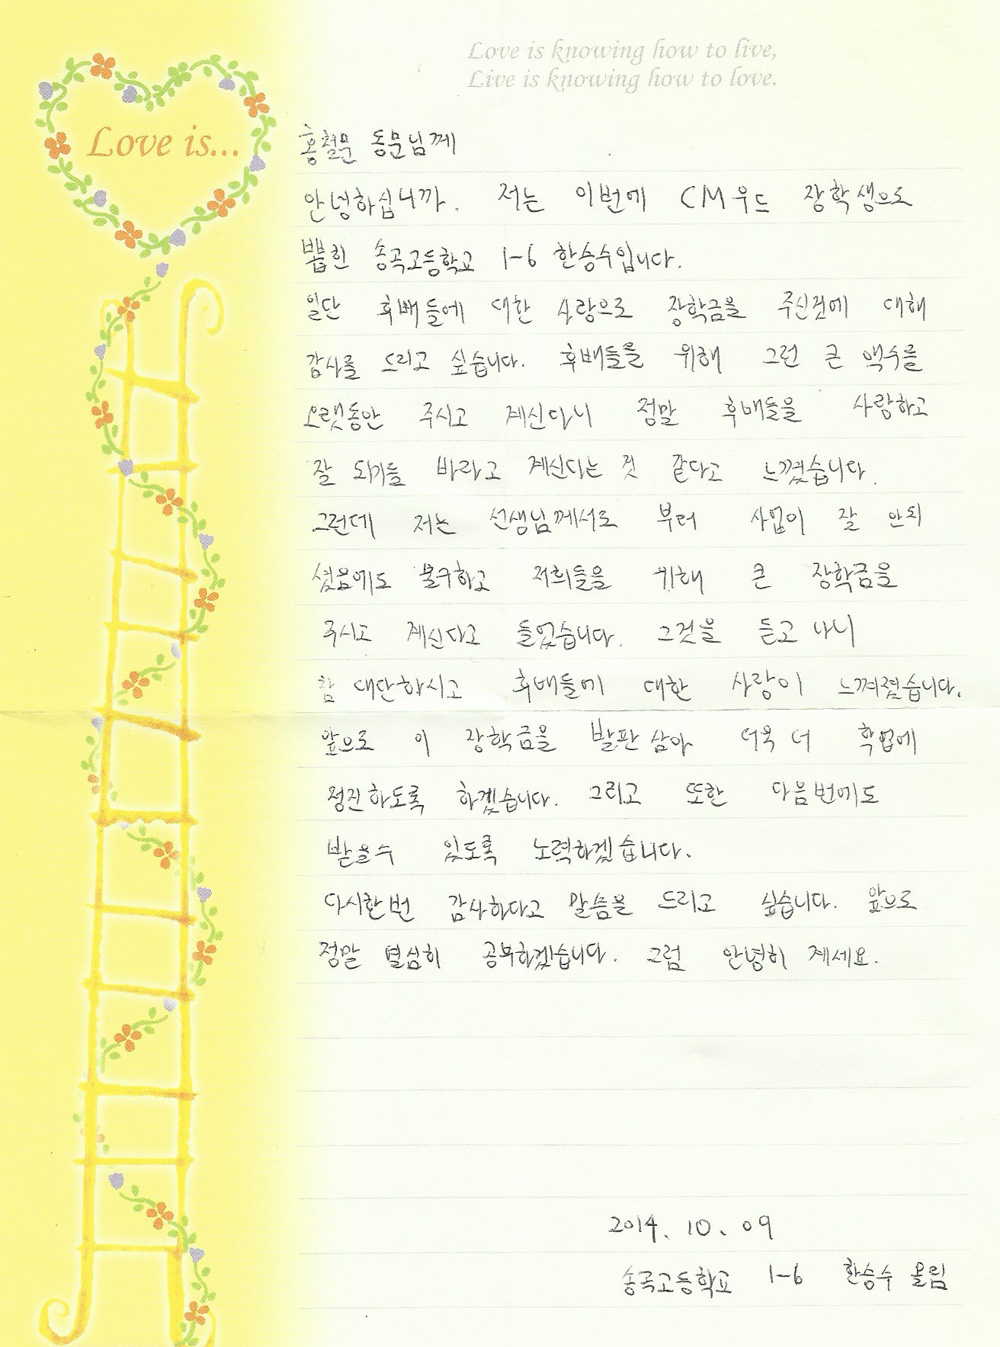 Love is knowing how to live,
Live is knowing how to love.
Love is...
홍철문 동문님께
안녕하십니까. 저는 이번에 CM우드 장학생으로
뽑힌 송곡고등학교 1-6 한승수입니다.
일단 후배들에 대한 사랑으로 장학금을 주신것에 대해
감사를 드리고 싶습니다. 후배들을 위해 그런 큰 액수를
오랫동안 주시고 계신다니 정말 후배들을 사랑하고
잘 되기를 바라고 계신다는 것 같다고 느꼈습니다.
그런데 저는 선생님께서로 부터 사업이 잘 안되
셨음에도 불구하고 저희들을 위해 큰 장학금을
주시고 계신다고 들었습니다. 그것을 듣고 나니
참 대단하시고 후배들에 대한 사랑이 느껴졌습니다.
앞으로 이 장학금을 발판 삼아 더욱 더 학업에
정진하도록 하겠습니다. 그리고 또한 다음번에도
받을수 있도록 노력하겠습니다.
다시한번 감사하다고 말씀을 드리고 싶습니다. 앞으로
정말 열심히 공부하겠습니다. 그럼 안녕히 계세요.
2014. 10. 09
송곡고등학교 1-6 한승수 올림